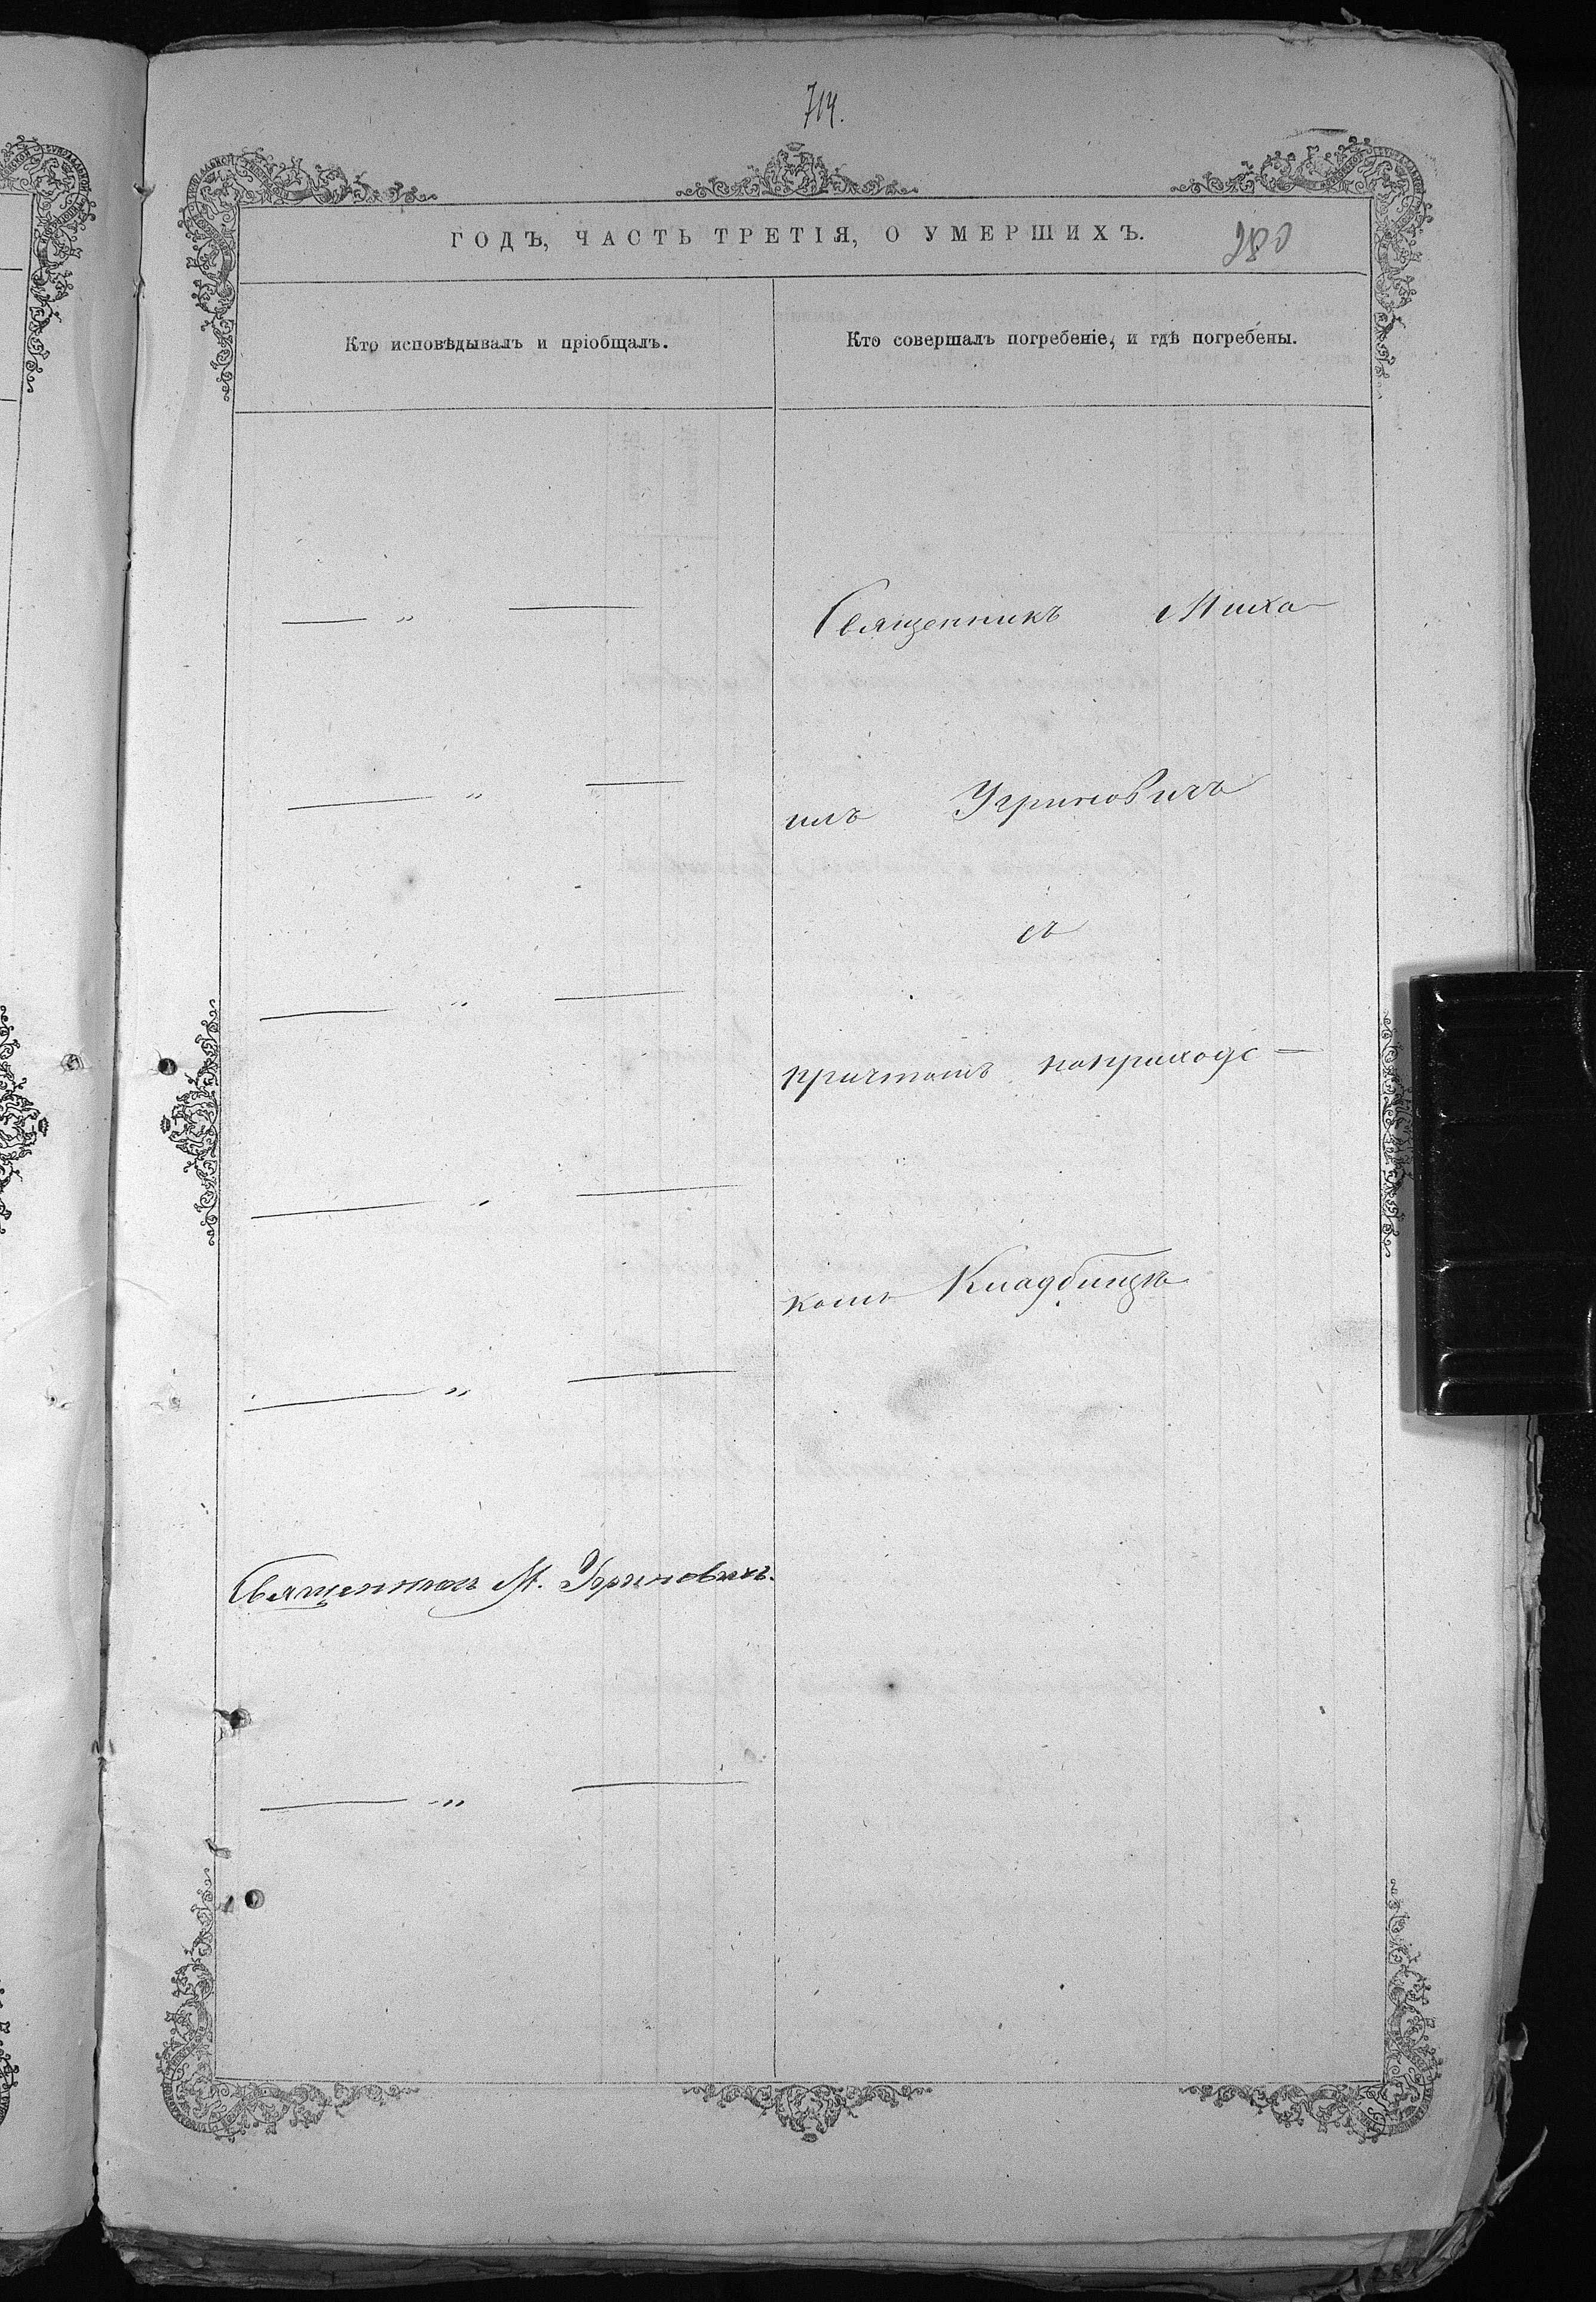 714.
ГОДЪ, ЧАСТЬ ТРЕТІЯ, О УМЕРШИХЪ.
280
Кто исповѣдывалъ и пріобщалъ.
Кто совершалъ погребеніе, и гдѣ погребены.
— „ —
Священникъ Миха
— „ —
илъ Угриновичъ
съ
— „ —
причтомъ на приходс-
— „ —
комъ Кладбищѣ
— „ —
Священникъ М. Угриновичъ.
— „ —